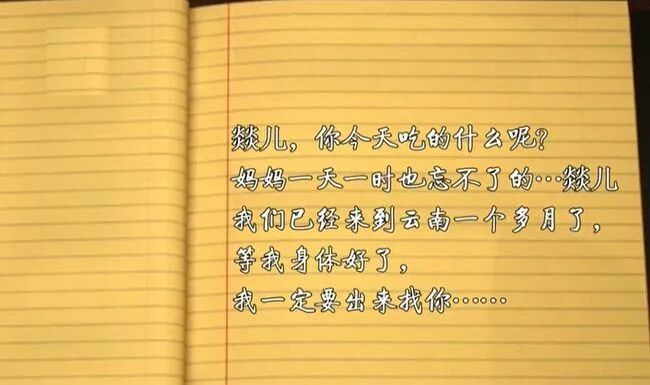 燚儿，你今天吃的什么呢？
妈妈一天一时也忘不了的…燚儿
我们已经来到云南一个多月了，
等我身体好了，
我一定要出来找你……